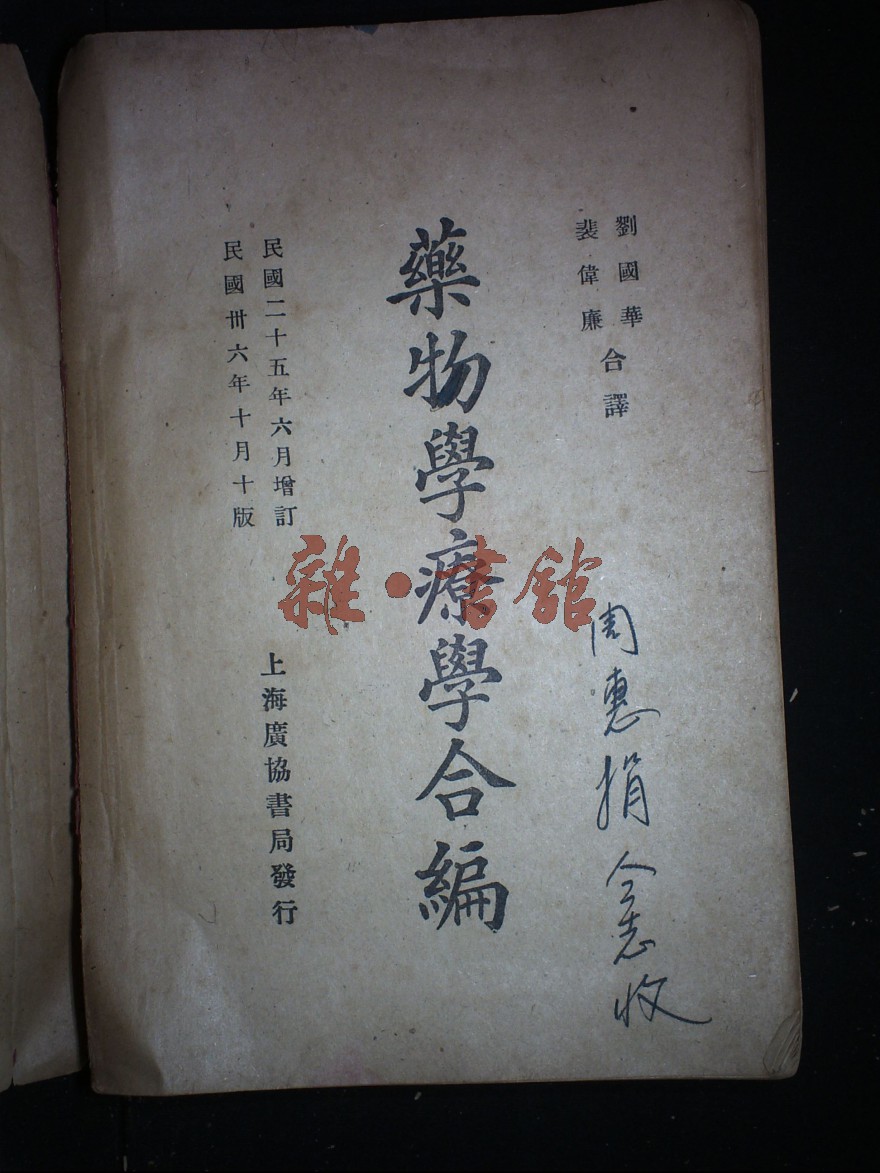 劉國華
裴偉廉
合譯
藥物學療學合編
民國二十五年六月增訂
民國卅六年十月十版
上海廣協書局發行
雜·書館
周惠捐
志收